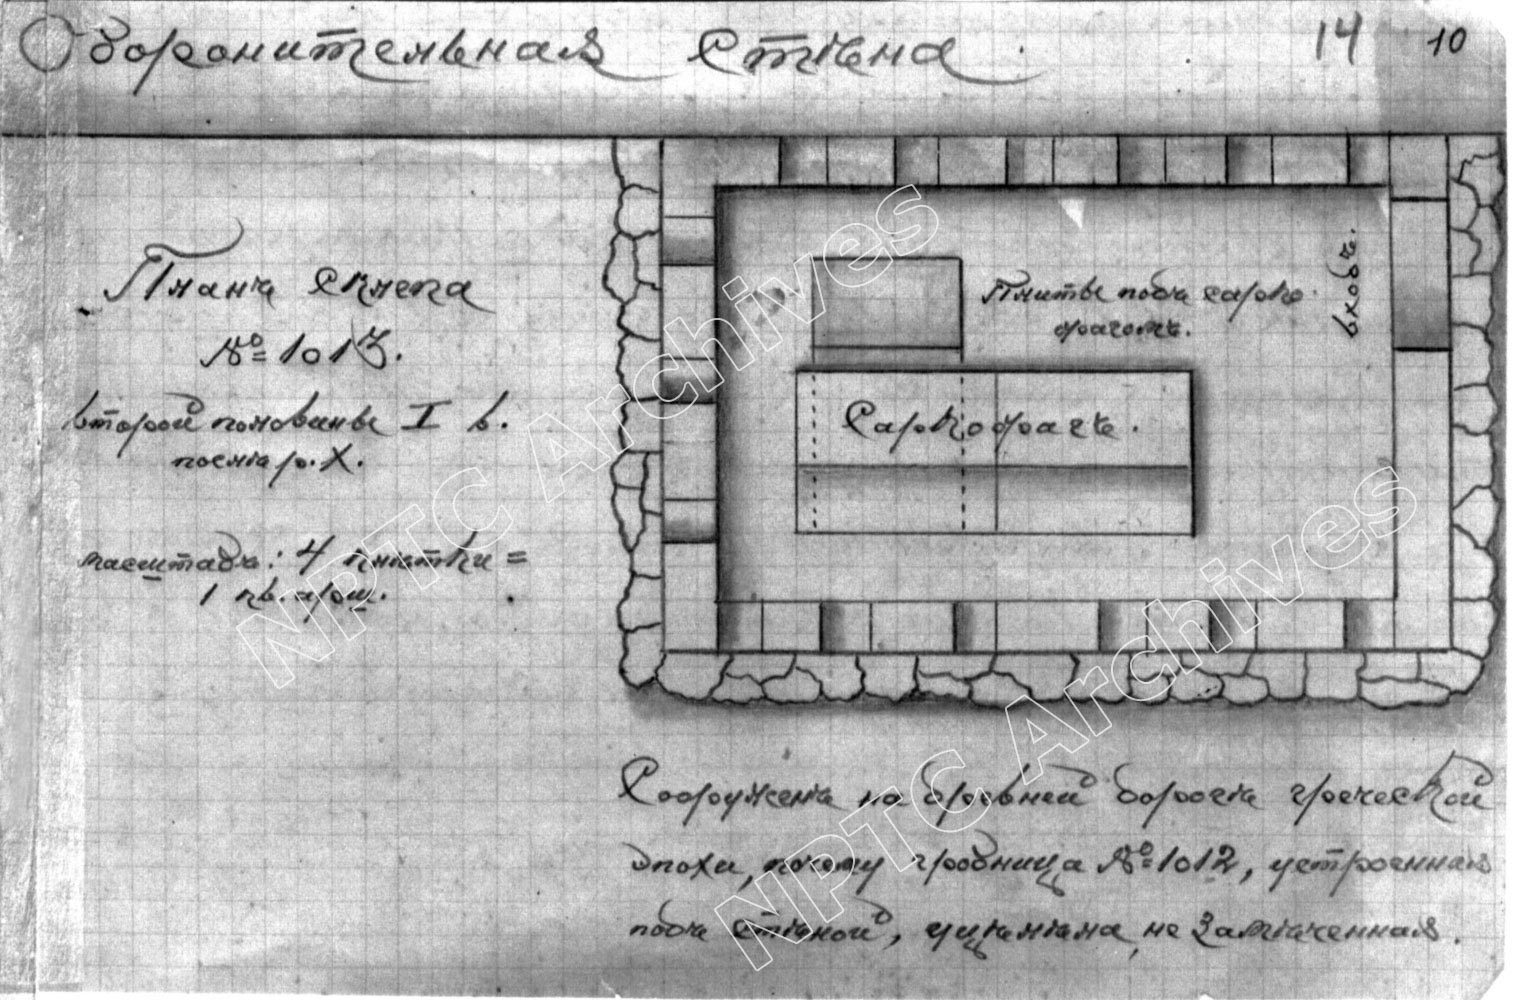 Оборонительная стѣна.
14 10
Планъ склепа
№ 1013.
второй половины I в.
послѣ р. Х.
масштабъ: 4 клѣтки =
1 кв. арш.
Плиты подъ сарко-
фагомъ.
входъ.
Саркофагъ.
Сооруженъ на древней дорогѣ греческой
эпохи, почему гробница № 1012, устроенная
подъ стѣной, уцѣлѣла, не замѣченная.
NPTC Archives
NPTC Archives